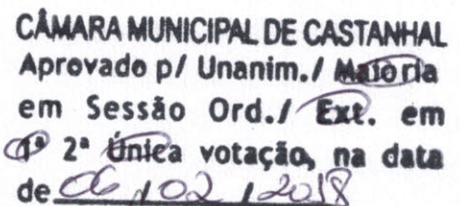 CÂMARA MUNICIPAL DE CASTANHAL
Aprovado p/ Unanim./ Maioria
em Sessão Ord./ Ext. em
1ª 2ª Única votação, na data
de 06 / 02 / 2018